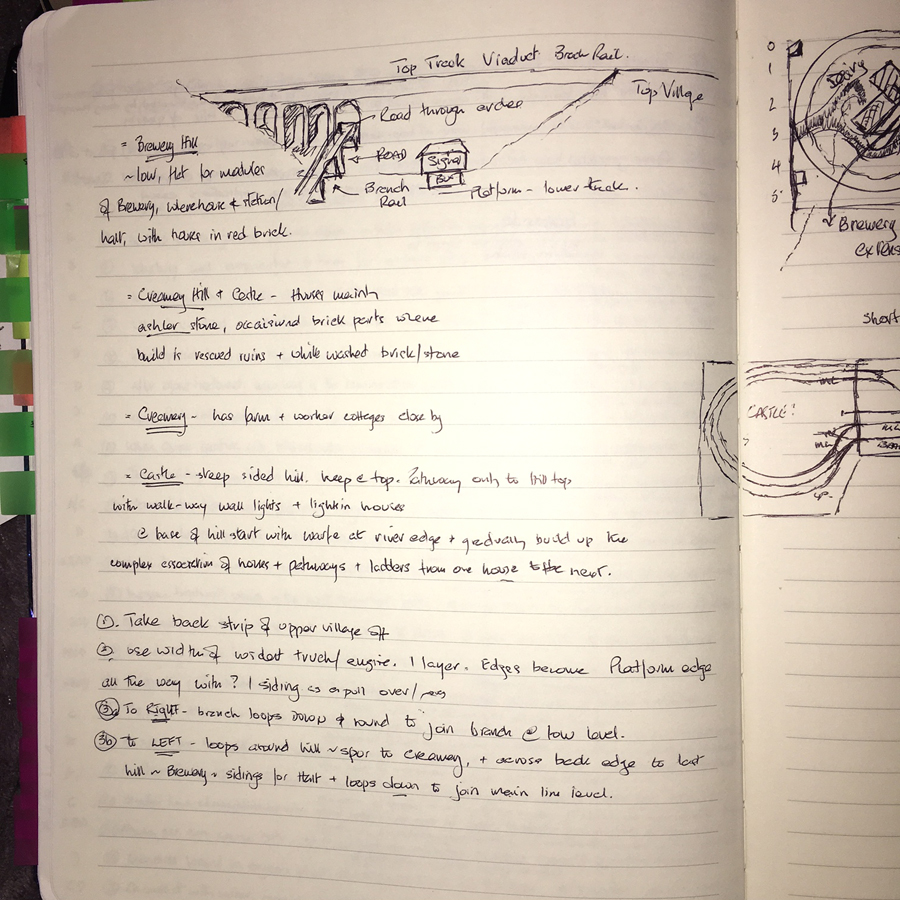 Top Track Viaduct Branch Rail.
Top Village
Road through arches
ROAD
Signal
Box
Branch
Rail
Platform - lower track.
= Brewery Hill
~ low, flat for modules
of Brewery, warehouse & station/
halt, with houses in red brick.
= Creamery Hill + Castle - Houses mainly
ashler stone, occaisional brick parts where
build is rescued ruins + white washed brick/stone
= Creamery - has farm + worker cottages close by
= Castle - steep sided hill. keep @ top. Pathway only to Hill top
with walk-way wall lights + light in houses
@ base of hill start with wharfe at river edge + gradually build up the
complex association of houses + pathways + ladders from one house to the next.
①. Take back strip of upper village off
② use width of widest truck/engine. 1 layer. Edges become Platform edge
all the way with? 1 siding as a pull over/pass
③a To RIGHT - branch loops down & round to join branch @ low level.
③b to LEFT - loops around hill ~ spur to creamery, + across back edge to last
hill ~ Brewery ~ sidings for Halt + loops down to join main line level.
0
1
2
3
4
5
Dairy
Brewery
Short
CASTLE?